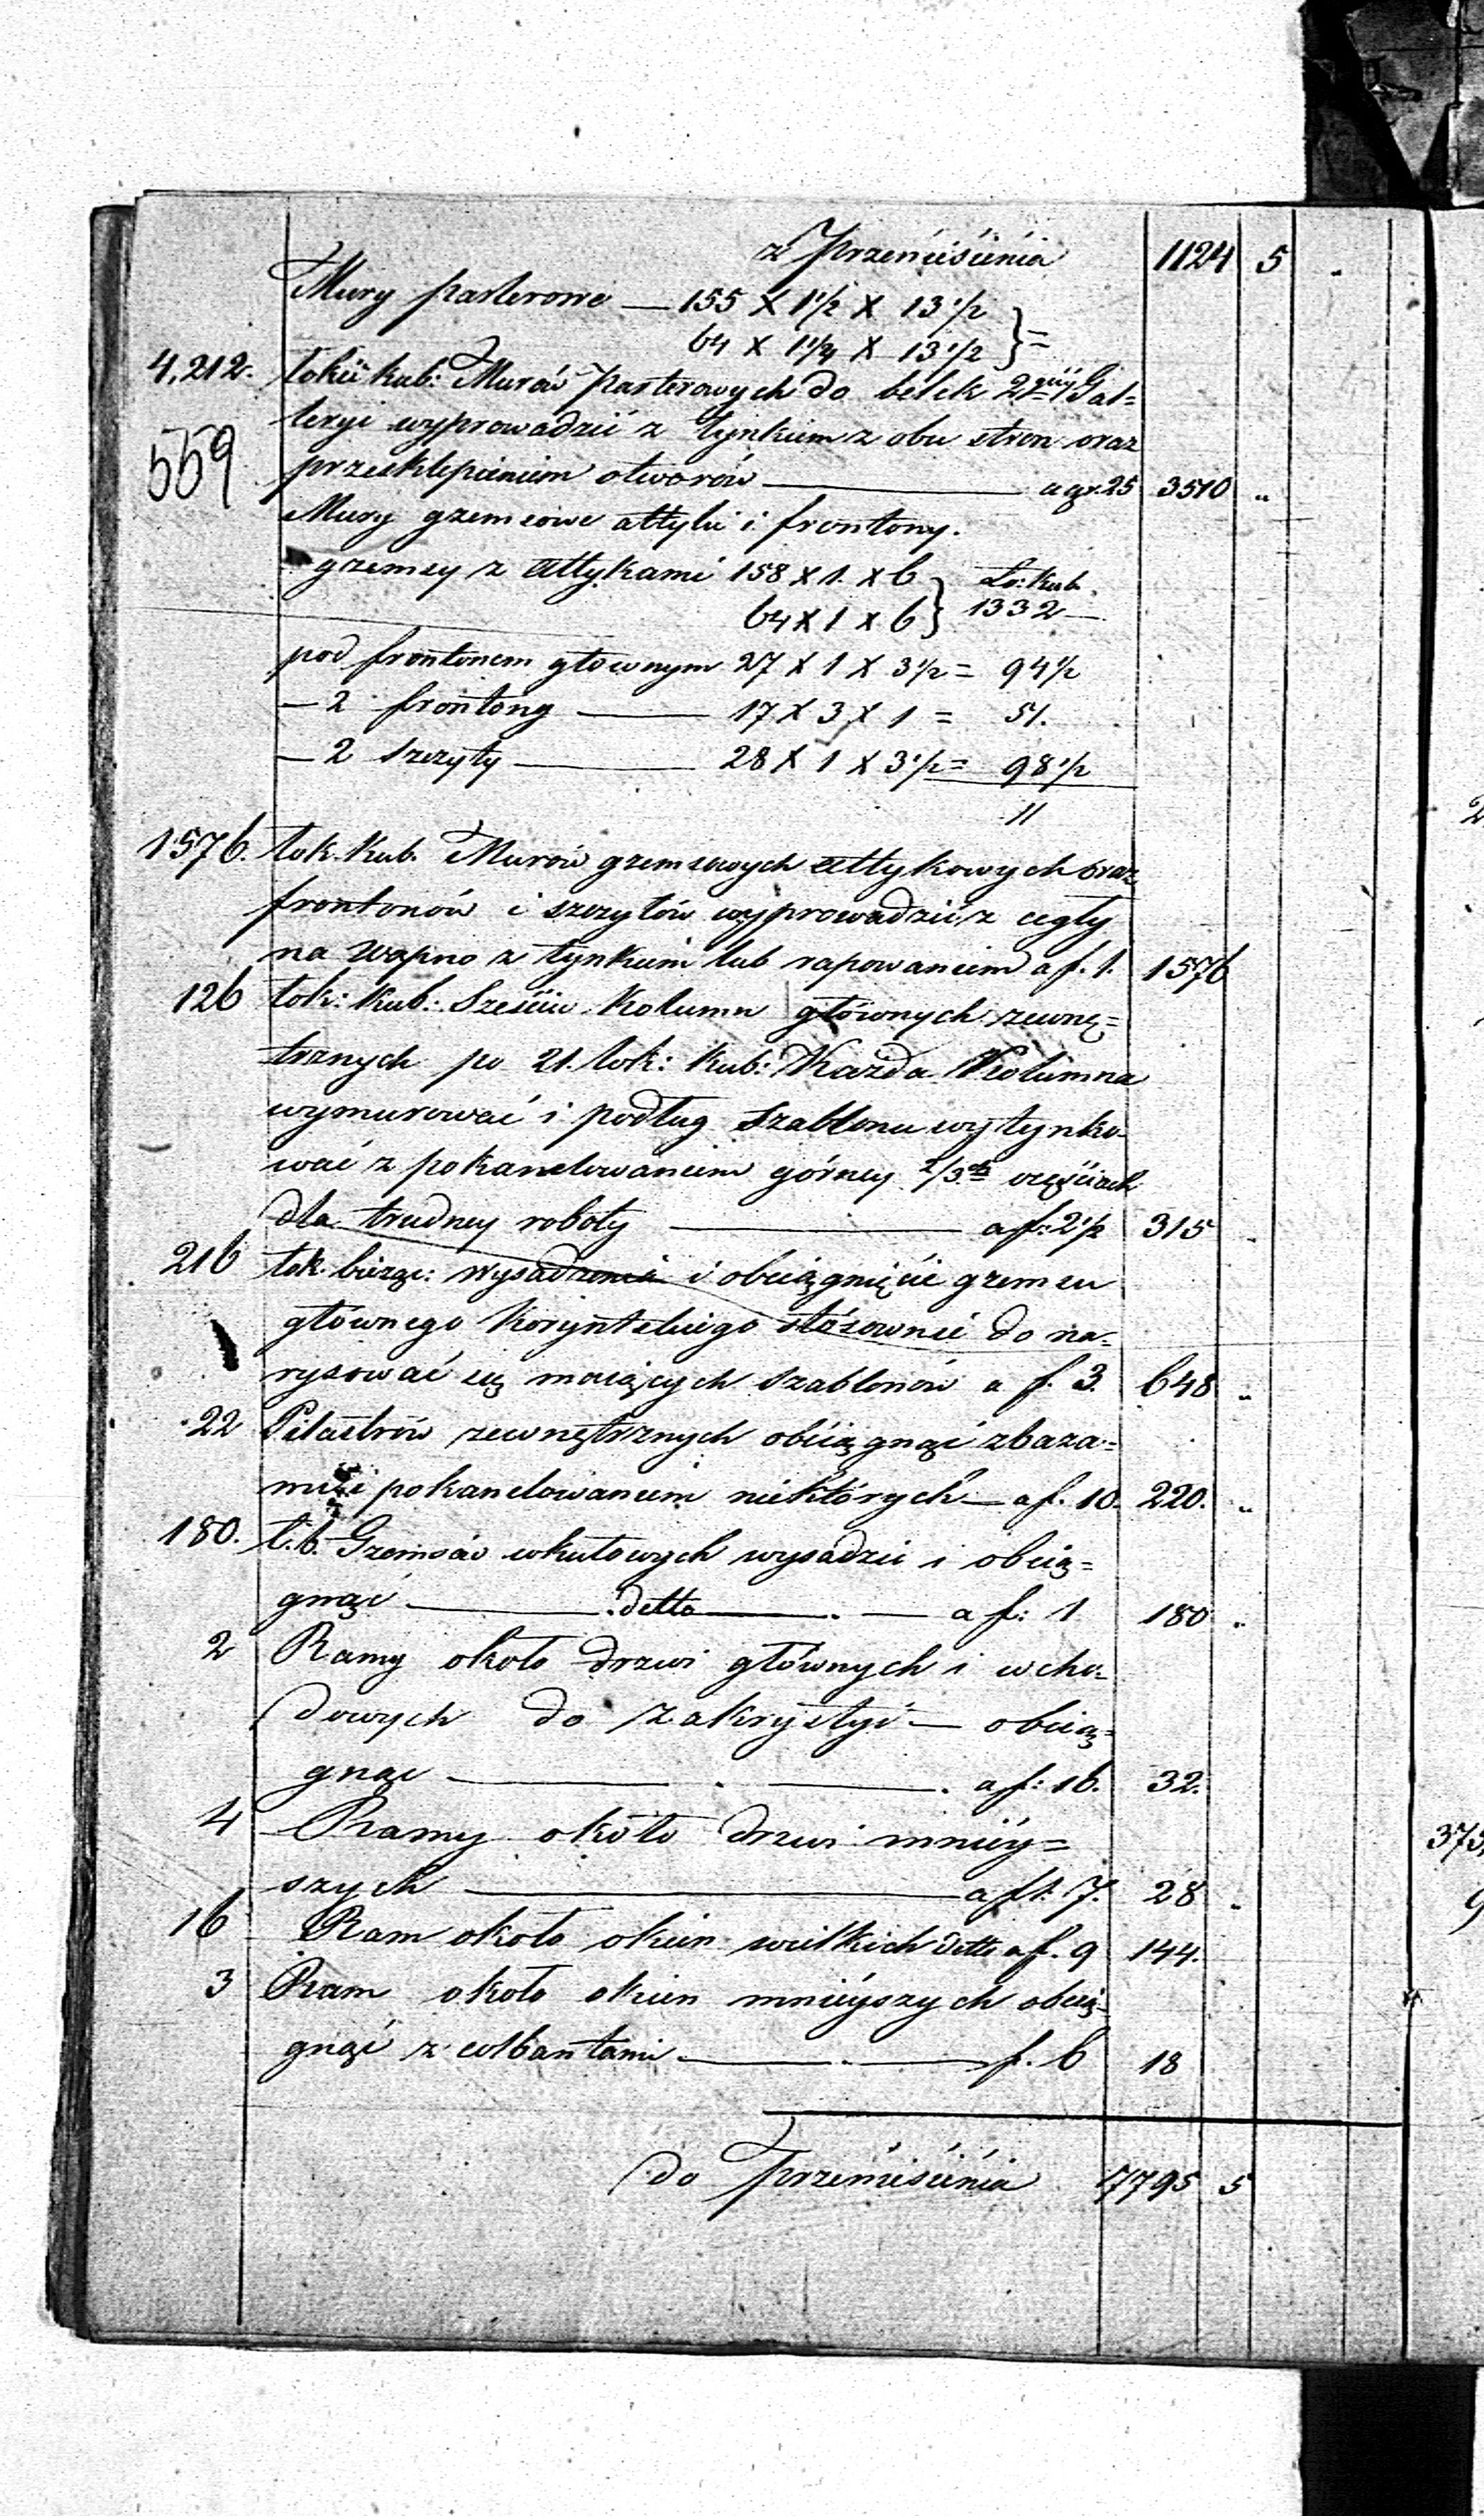 z Przeniesienia 1124 5 .
Mury parterowe — 155 X 1 1/2 X 13 1/2
64 X 1 1/4 X 13 1/2 } =
4,212. łokci kub: Murów parterowych do belek 2giey Gal=
leryi wyprowadzić z tynkiem z obu stron oraz
559 przesklepieniem otworów — a gr 25 3510 „
Mury gzemsowe attyki i frontony.
gzemsy z attykami 158 X 1. X 6 } Ło: Kub.
64 X 1 X 6 } 1332 —
pod frontonem głownym 27 X 1 X 3 1/2 = 94 1/2
— 2 frontony — 17 X 3 X 1 = 51.
— 2 szczyty — 28 X 1 X 3 1/2 = 98 1/2
"
1576. łok. Kub. Murów gzemsowych attykowych oraz
frontonów i szczytów wyprowadzić z cegły
na wapno z tynkiem lub rapowaniem a f. 1. 1576
126 łok: Kub: Sześciu Kolumn głównych zewnę=
trznych po 21. łok: Kub: Każda Kolumna
wymurować i podług szablonu wytynko-
wać z pokanelowaniem górney 2/3ch częściach
dla trudney roboty — a f: 2 1/2 315 .
216 łok. bieżąc: wysadzenia i obciągnięcie gzemsu
głównego Koryntskiego stósownie do na-
rysować się maiących szablonów a f. 3. 648 „
22 Pilastrów zewnętrznych obciągnąć z baza=
mi i pokanelowaniem niektórych — a f. 10. 220. „
180. ł. b. Gzemsów wysadzić i obcią=
gnąć — detto — . — a f: 1 180 .
2 Ramy około drzwi głównych i wcho-
dowych do zakrystyi — obcią=
gnąć — . — . a f: 16. 32.
4 Ramy około drzwi mniéy=
szych — a fl. 7. 28 .
16 Ram około okien wielkich detto a f. 9 144.
3 Ram około okien mniéyszych obcią-
gnąć z — . — f. 6 18
do Przeniesienia 7795 5